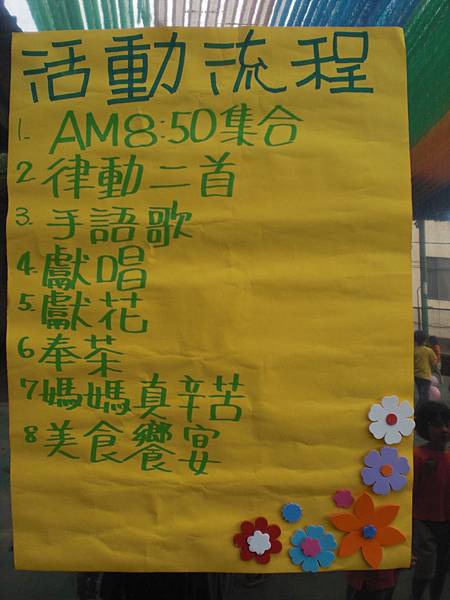 活動流程
1. AM8:50集合
2 律動二首
3. 手語歌
4. 獻唱
5. 獻花
6 奉茶
7 媽媽真辛苦
8 美食饗宴